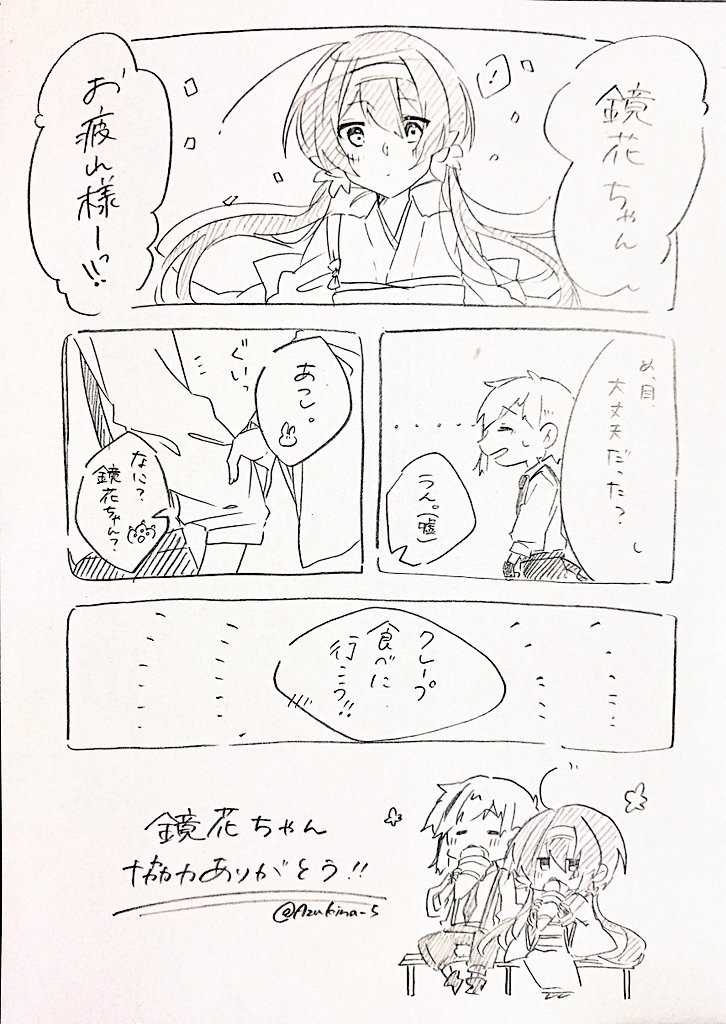 鏡花ちゃん
お疲れ様ーっ!!
め、目
大丈夫だった?
うん。(嘘)
ぐいっ
あつし。
なに?
鏡花ちゃん?
クレープ
食べに
行こう!!
鏡花ちゃん
協力ありがとう!!
@Azukina_s